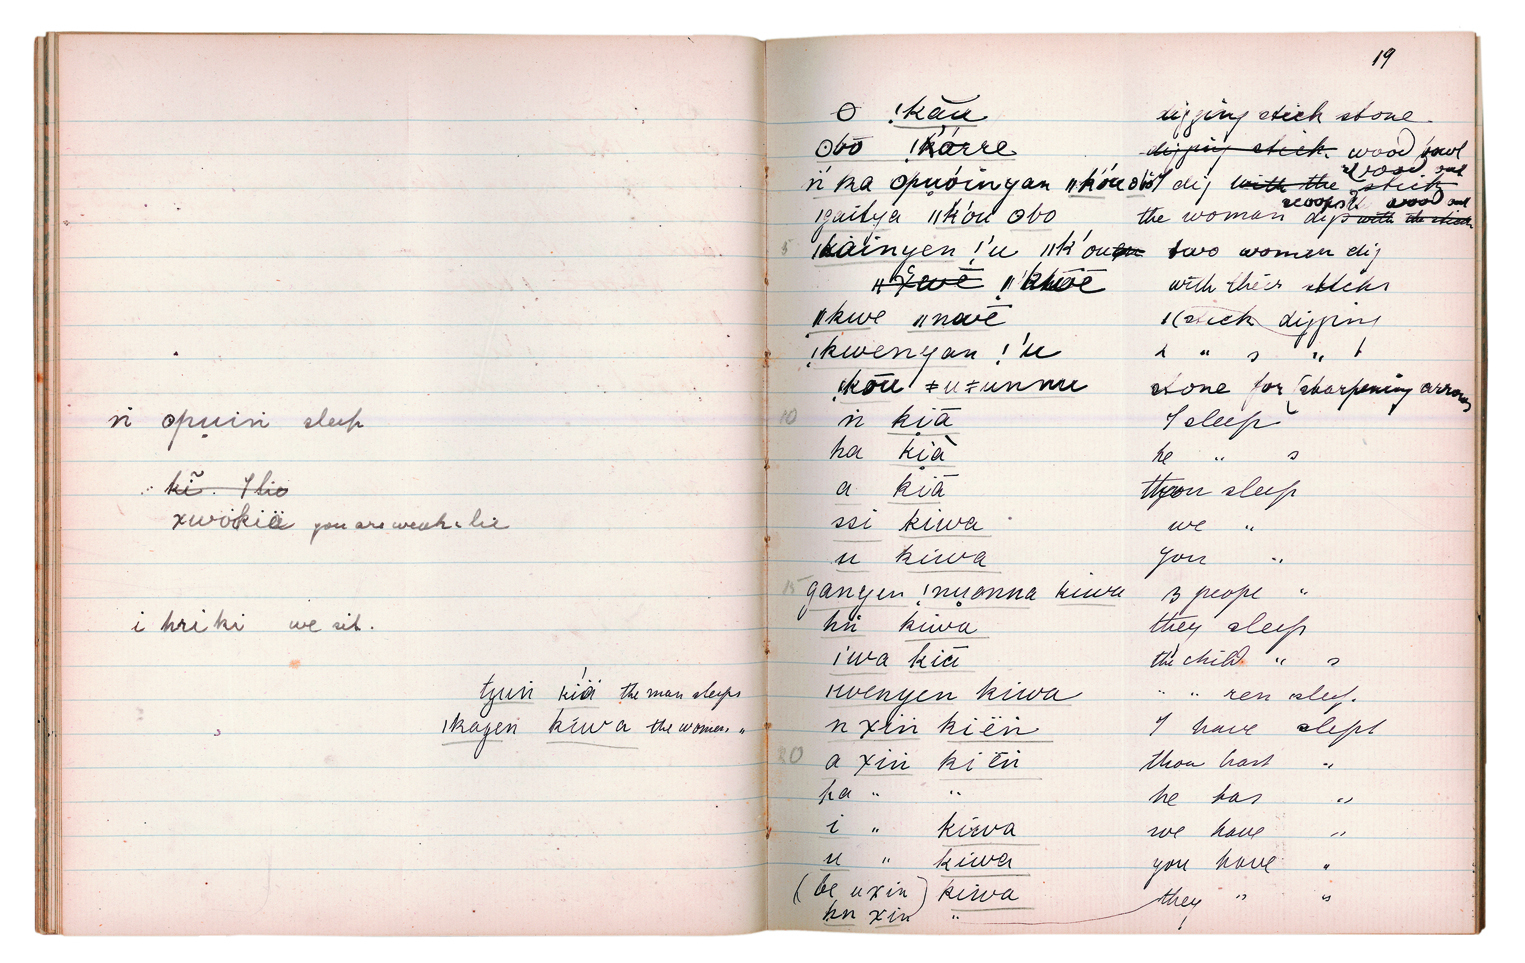 n̄ ʘpuin sleep
kĩ. I lie
xwökiä you are weak & lie
i hri ki we sit.
tyuin kiä the man sleeps
ǀkagen kiwa the women "
19
ʘ ǃkāu digging stick stone.
ʘbō ǃkárre digging stick. wood bowl
wood out
n̄ ka ʘpuóinyan ǁk'óu ʘbo I dig with the stick
scoops wood out
ǀgaitya ǁk'óu ʘbo the woman digs with the stick
5 ǀkáinyen ǃ'u ǁk'ou two women dig
ǁxwē with their sticks
ǁkwe ǁnavē stick digging
ǃkwenyan ǃ'u " s "
ǃkōu ǂuǂunnu stone for (sharpening arrows
10 n̄ kiā I sleep
ha kia he " s
a kiā thou sleep
ssi kiwa we "
u kiwa you "
15 gangen ǃnuonna kiwa 3 people "
hn̄ kiwa they sleep
ǀwa kiā the child " s
ǀwenyen kiwa " " ren sleep.
n xin kiën I have slept
20 a xin kiën thou hast "
ha " " he has "
i " kiewa we have "
u " kiwa you have "
(be u xin) kiwa they " "
hn xin "